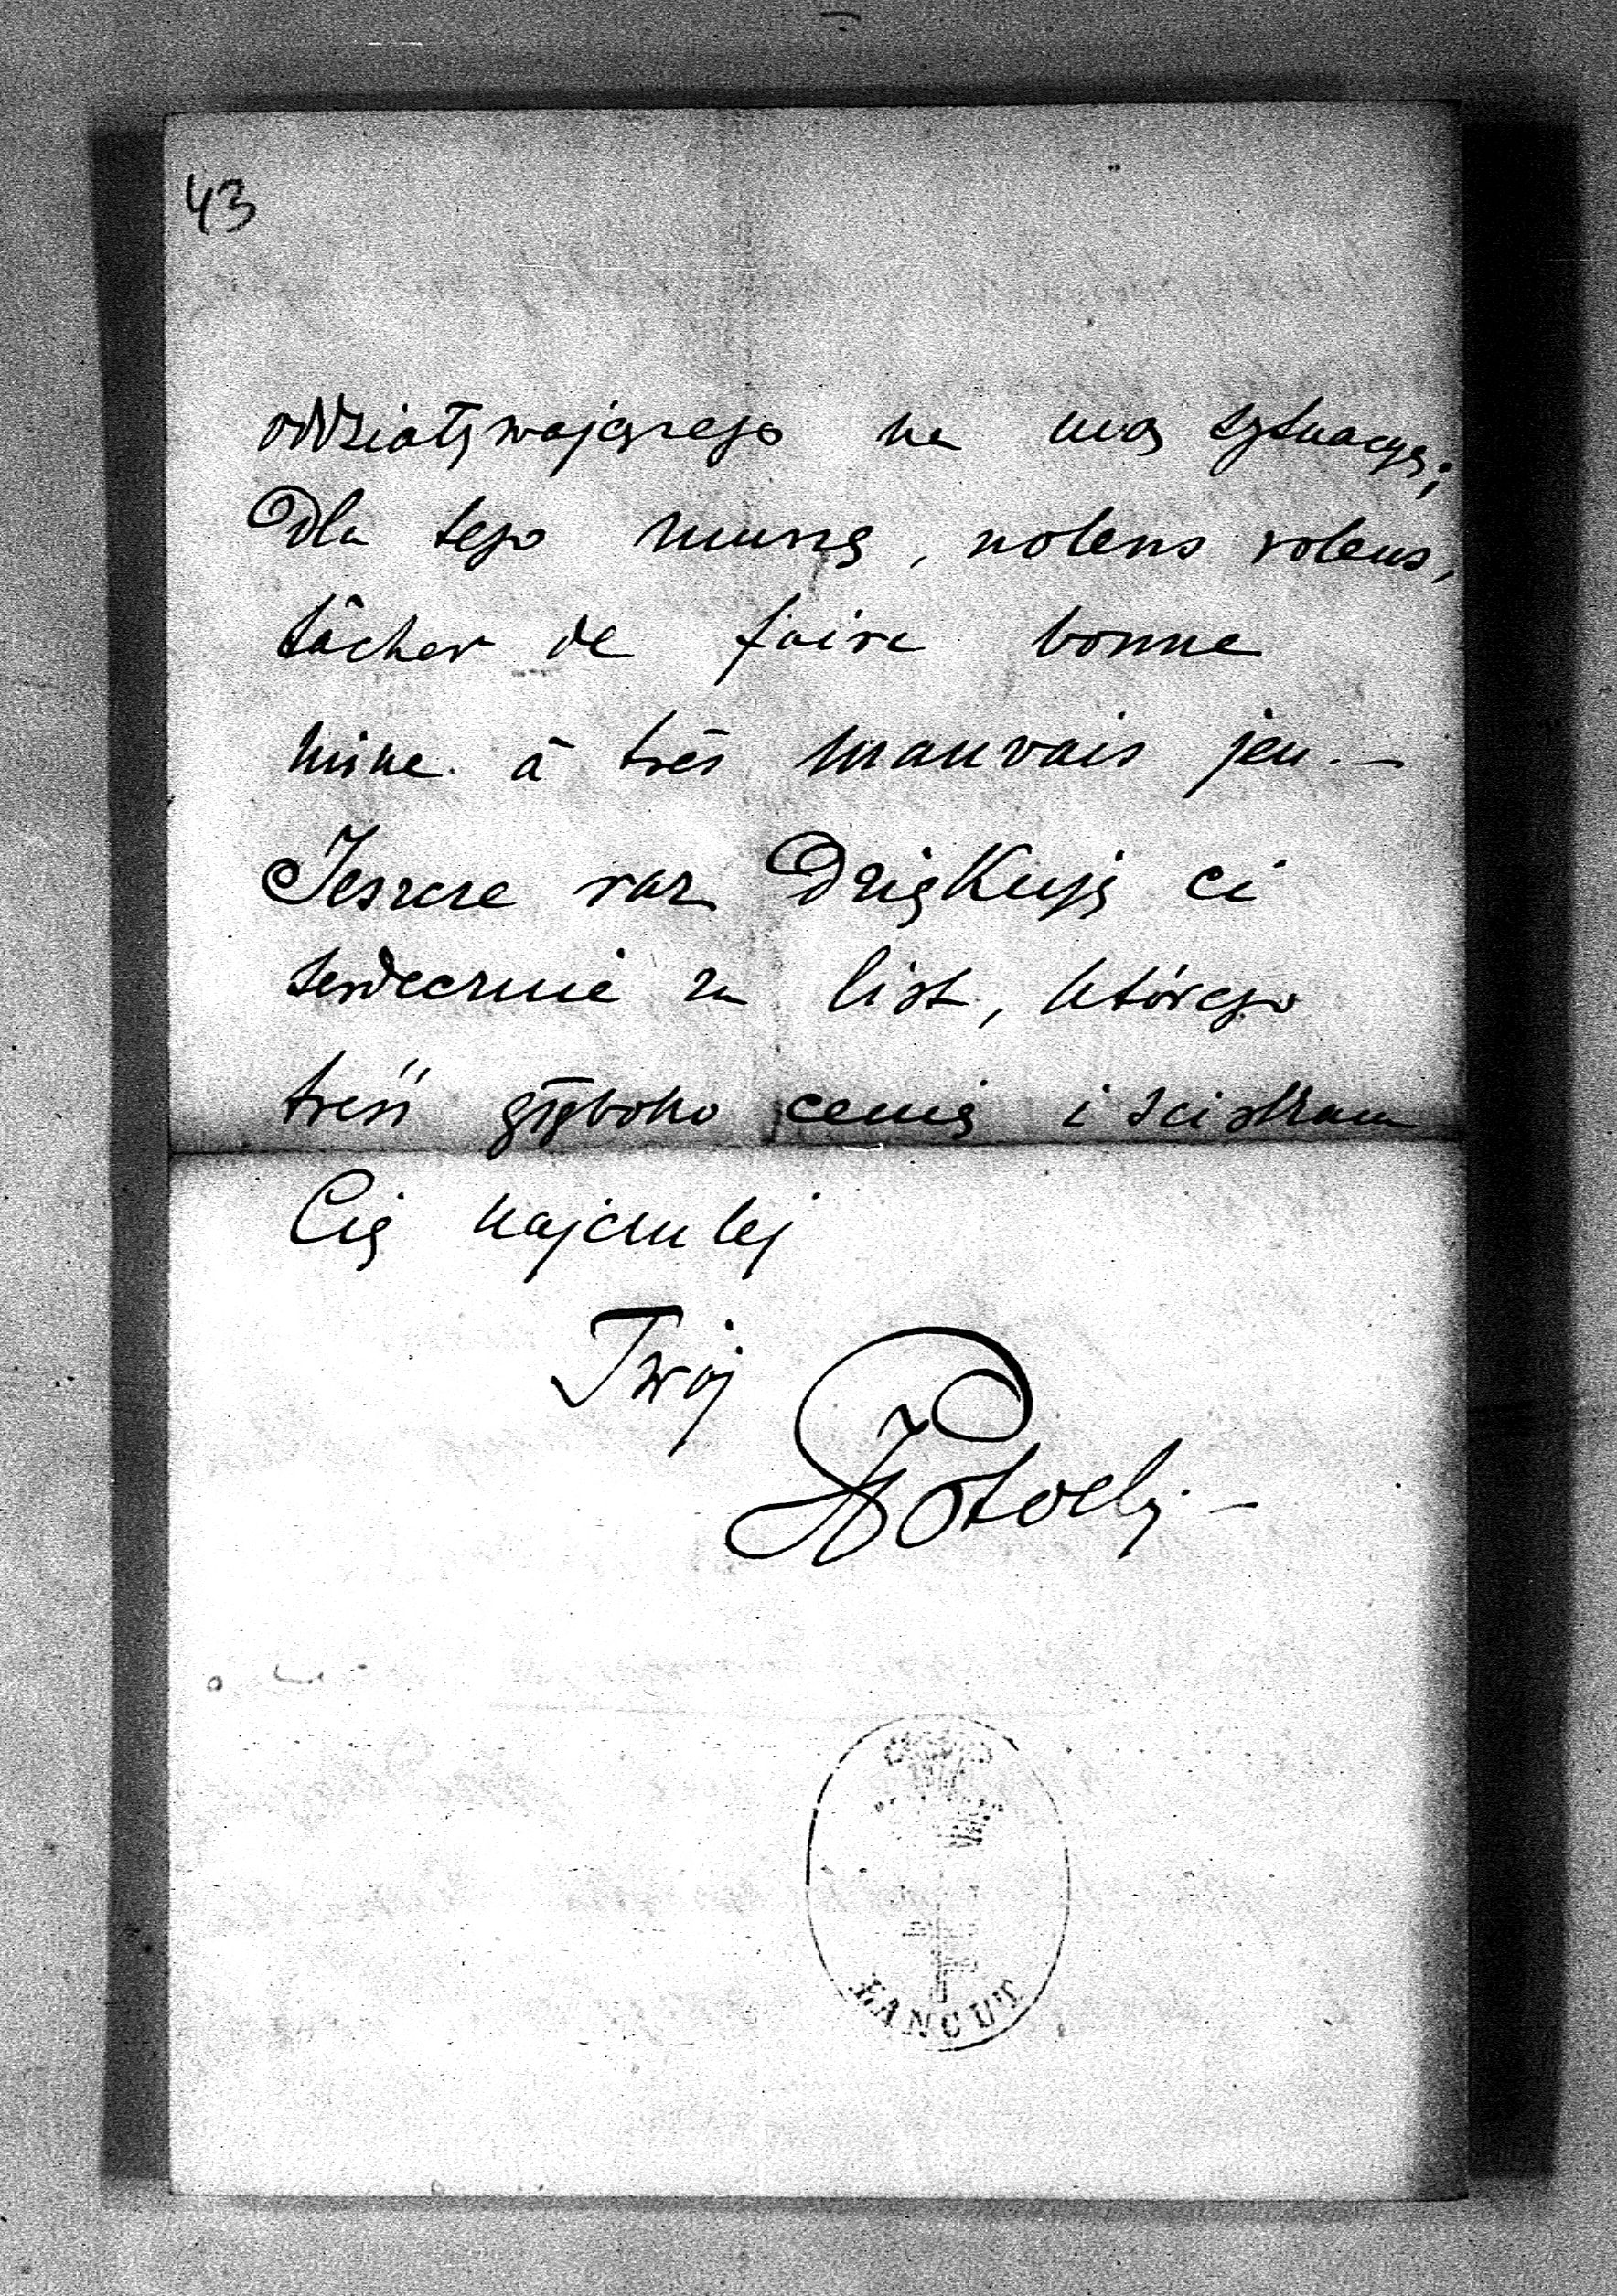 43
oddziaływającego na moą sytuacyę;
Dla tego muszę, nolens volens,
tâcher de faire bonne
mine à très mauvais jeu. —
Jeszcze raz Dziękuję ci
serdecznie za list, którego
treść głęboko cenię i sciskam
Cię najczulej
Twój
Potocki —
ŁANCUT